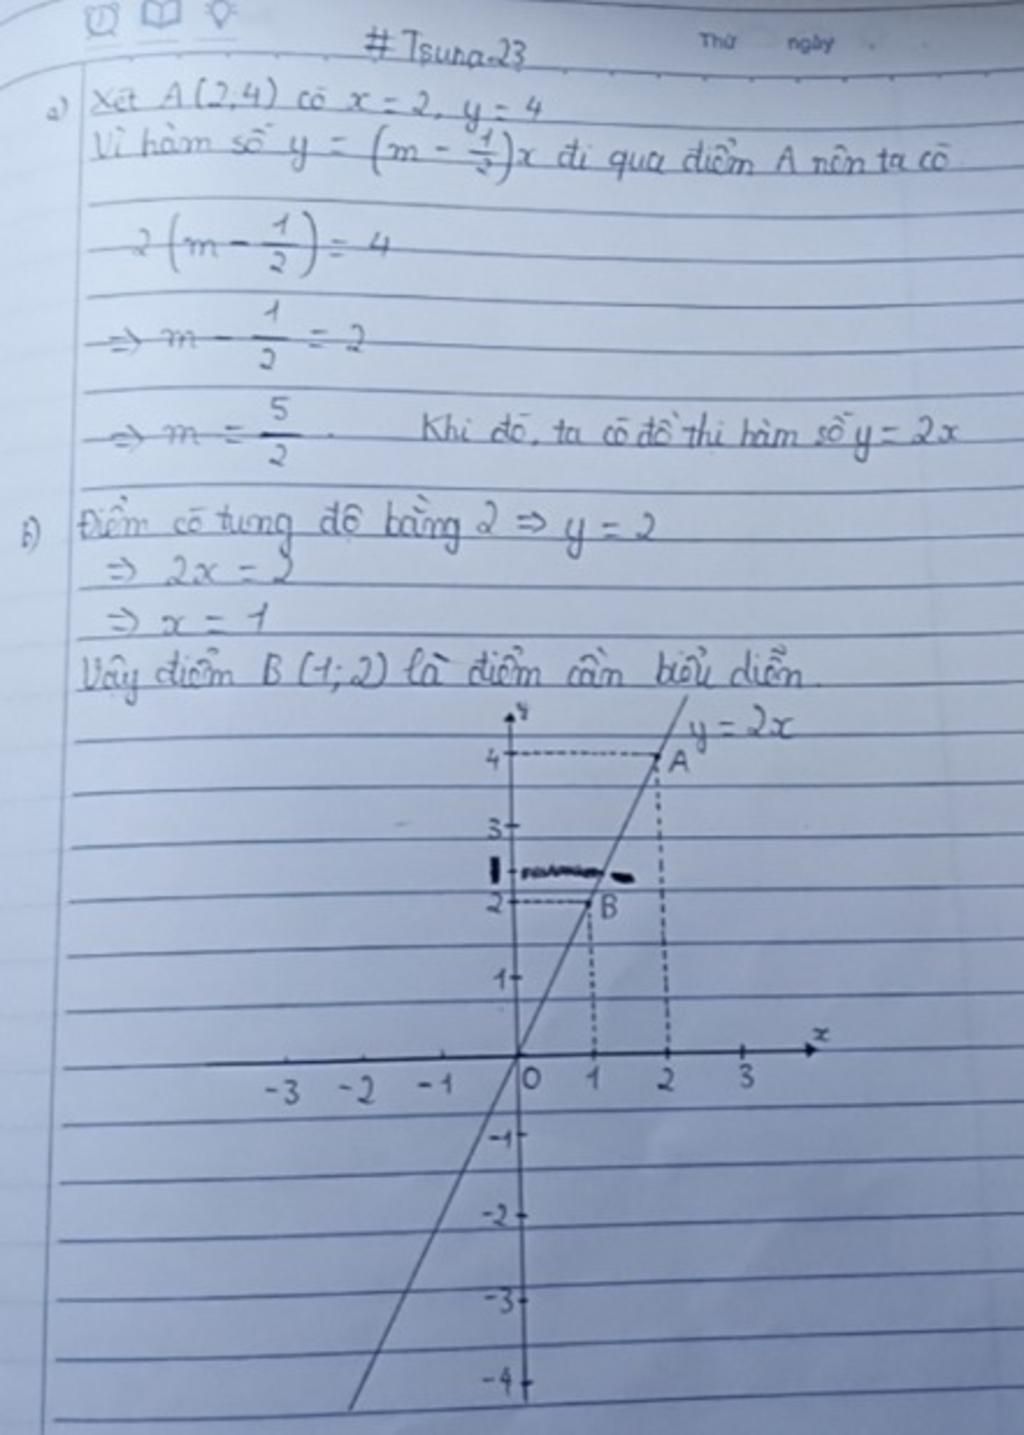 #Tsuna-23
Thứ ngày
a) Xét A(2,4) có x = 2, y = 4
Vì hàm số y = (m - 1/2)x đi qua điểm A nên ta có
2(m - 1/2) = 4
=> m - 1/2 = 2
=> m = 5/2. Khi đó, ta có đồ thị hàm số y = 2x
b) Điểm có tung độ bằng 2 => y = 2
=> 2x = 2
=> x = 1
Vậy điểm B(1; 2) là điểm cần biểu diễn.
y
y = 2x
4
A
3
2
B
1
x
-3 -2 -1 0 1 2 3
-1
-2
-3
-4